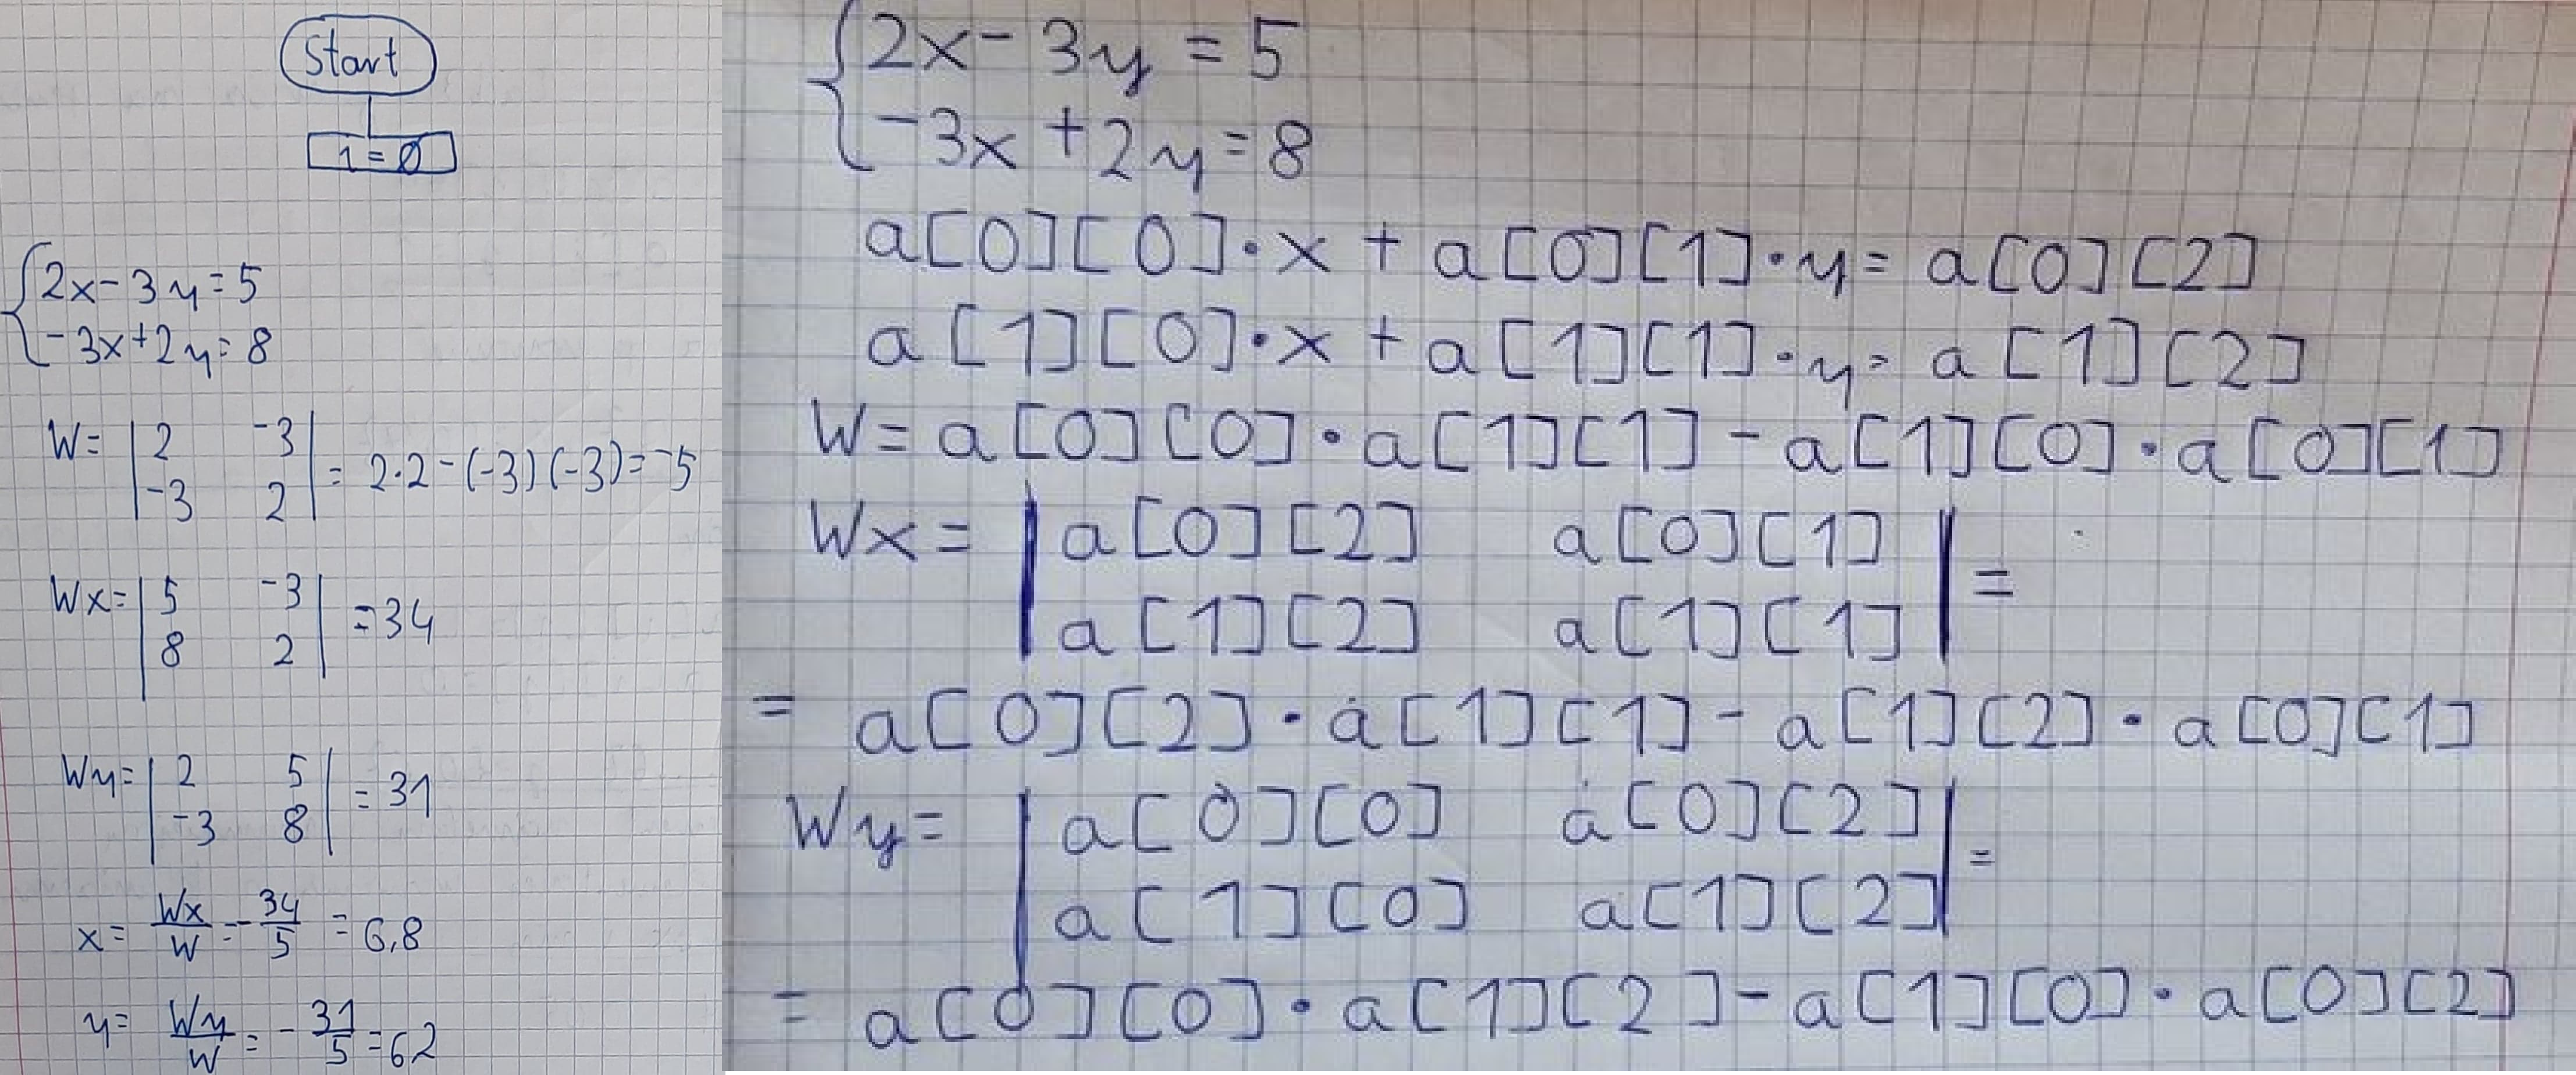 Start
1=0
2x-3y=5
-3x+2y=8
W= | 2 -3 |
| -3 2 | = 2·2-(-3)(-3)=-5
Wx= | 5 -3 |
| 8 2 | =34
Wy= | 2 5 |
| -3 8 | =31
x= Wx/W = -34/5 = 6,8
y= Wy/W = -31/5 =62
2x-3y=5
-3x+2y=8
a[0][0]·x+a[0][1]·y=a[0][2]
a[1][0]·x+a[1][1]·y=a[1][2]
W=a[0][0]·a[1][1]-a[1][0]·a[0][1]
Wx= | a[0][2] a[0][1] | =
| a[1][2] a[1][1] |
= a[0][2]·a[1][1]-a[1][2]·a[0][1]
Wy= | a[0][0] a[0][2] | =
| a[1][0] a[1][2] |
= a[0][0]·a[1][2]-a[1][0]·a[0][2]